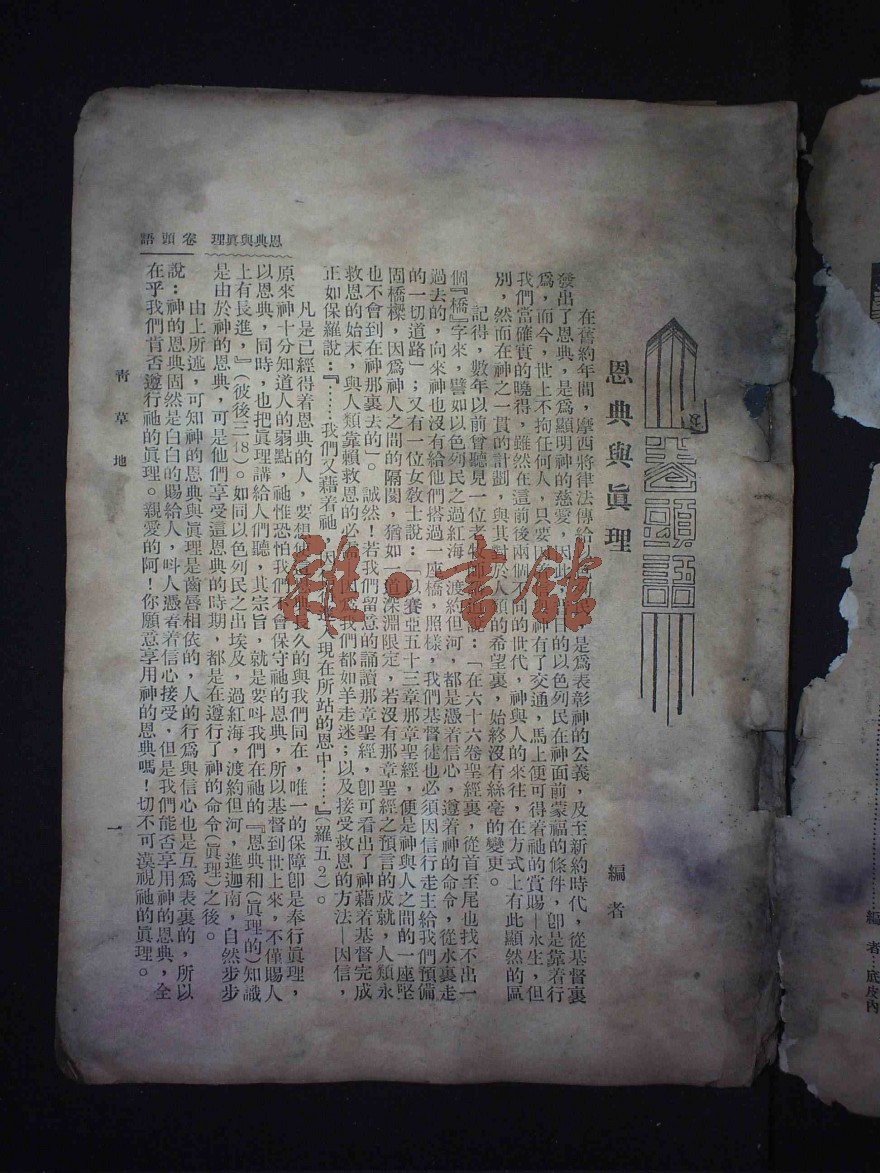 卷頭語
恩典與眞理
編者
在舊約年間，摩西將律法傳給 是爲表彰神的公義，及至新約時代，從基督裏
發出了恩典，是爲顯明神的慈愛，因此 日的以色列民在神面前蒙福的條件，卽是靠着行
爲，而今，世上不拘任何人，只要 神有了交通，馬上便可得着祂的賞賜—永生，但
我們當確實的曉得，雖然在這前後兩個不同的世代，神與人的來往，在方式上有此顯然的區
別，然而在神之一貫的計劃，與其對於人類的希望裏，始終沒有絲毫的變更。
記得，數年以前曾聽見一位老牧師 說：「在六十六卷聖經裏，從首至尾也找不出一
個『橋』字來，譬如以色列民之過紅海，渡約但河，都是憑着信心，遵着神的命令，從水裏走
過去的，向來神也沒有給他們搭過一座橋，照樣，我們基督徒也必須因信行走主給我們預備
的一切道路」；又有一位女敎士說：「以賽亞五十三章那章聖經，便是神與人之間的一座堅
固橋樑，因爲神人之間的隔閡，猶如一道深淵限定，若沒有那章聖經之預言的成就，人類永
也不會到在神那裏去的」。誠然！若我們留意的誦讀那章聖經，卽可看出了神藉着基督完成
救恩的始末，與人類靠賴救恩的必需 因爲我們都如羊走迷；以及接受救恩的方法—因信，
正如保羅說：『……我們又藉着祂，因 入現在所站的恩中……』（羅五2）。
凡是已經得着恩典的人，要想 久的與我們同在，唯一的保障卽是奉行眞理，
原來神十分知道人的弱點，祂惟恐怕我們不會保守祂的恩典，所以基督到世上來，不僅賜人
以恩典，同時，也把眞理講給人們聽，其宗旨，就是要叫我們在祂的『恩典和（眞理的）知識
上有長進，』（彼後三18）。如同以色列民之出埃及，過紅海，渡約但河，進迦南，自然步步
是由於神的恩典，可是他們享受這恩典的時期，都是在遵行了神的命令（眞理）之後。
由上所述，可知神的恩典與眞理是齒唇相依的，人的行爲與信心也是互爲表裏的，所以
說：神的恩典固然是白白的賜給人，叫人憑着信心接受，但是我們能否享用神的恩典，全
在乎我們肯否遵行祂的眞理。親愛的阿！你願意享用神的恩典嗎！切不可漠視祂的眞理。
恩典與眞理 卷頭語
靑草地
一
雜·書館
編者…底皮內